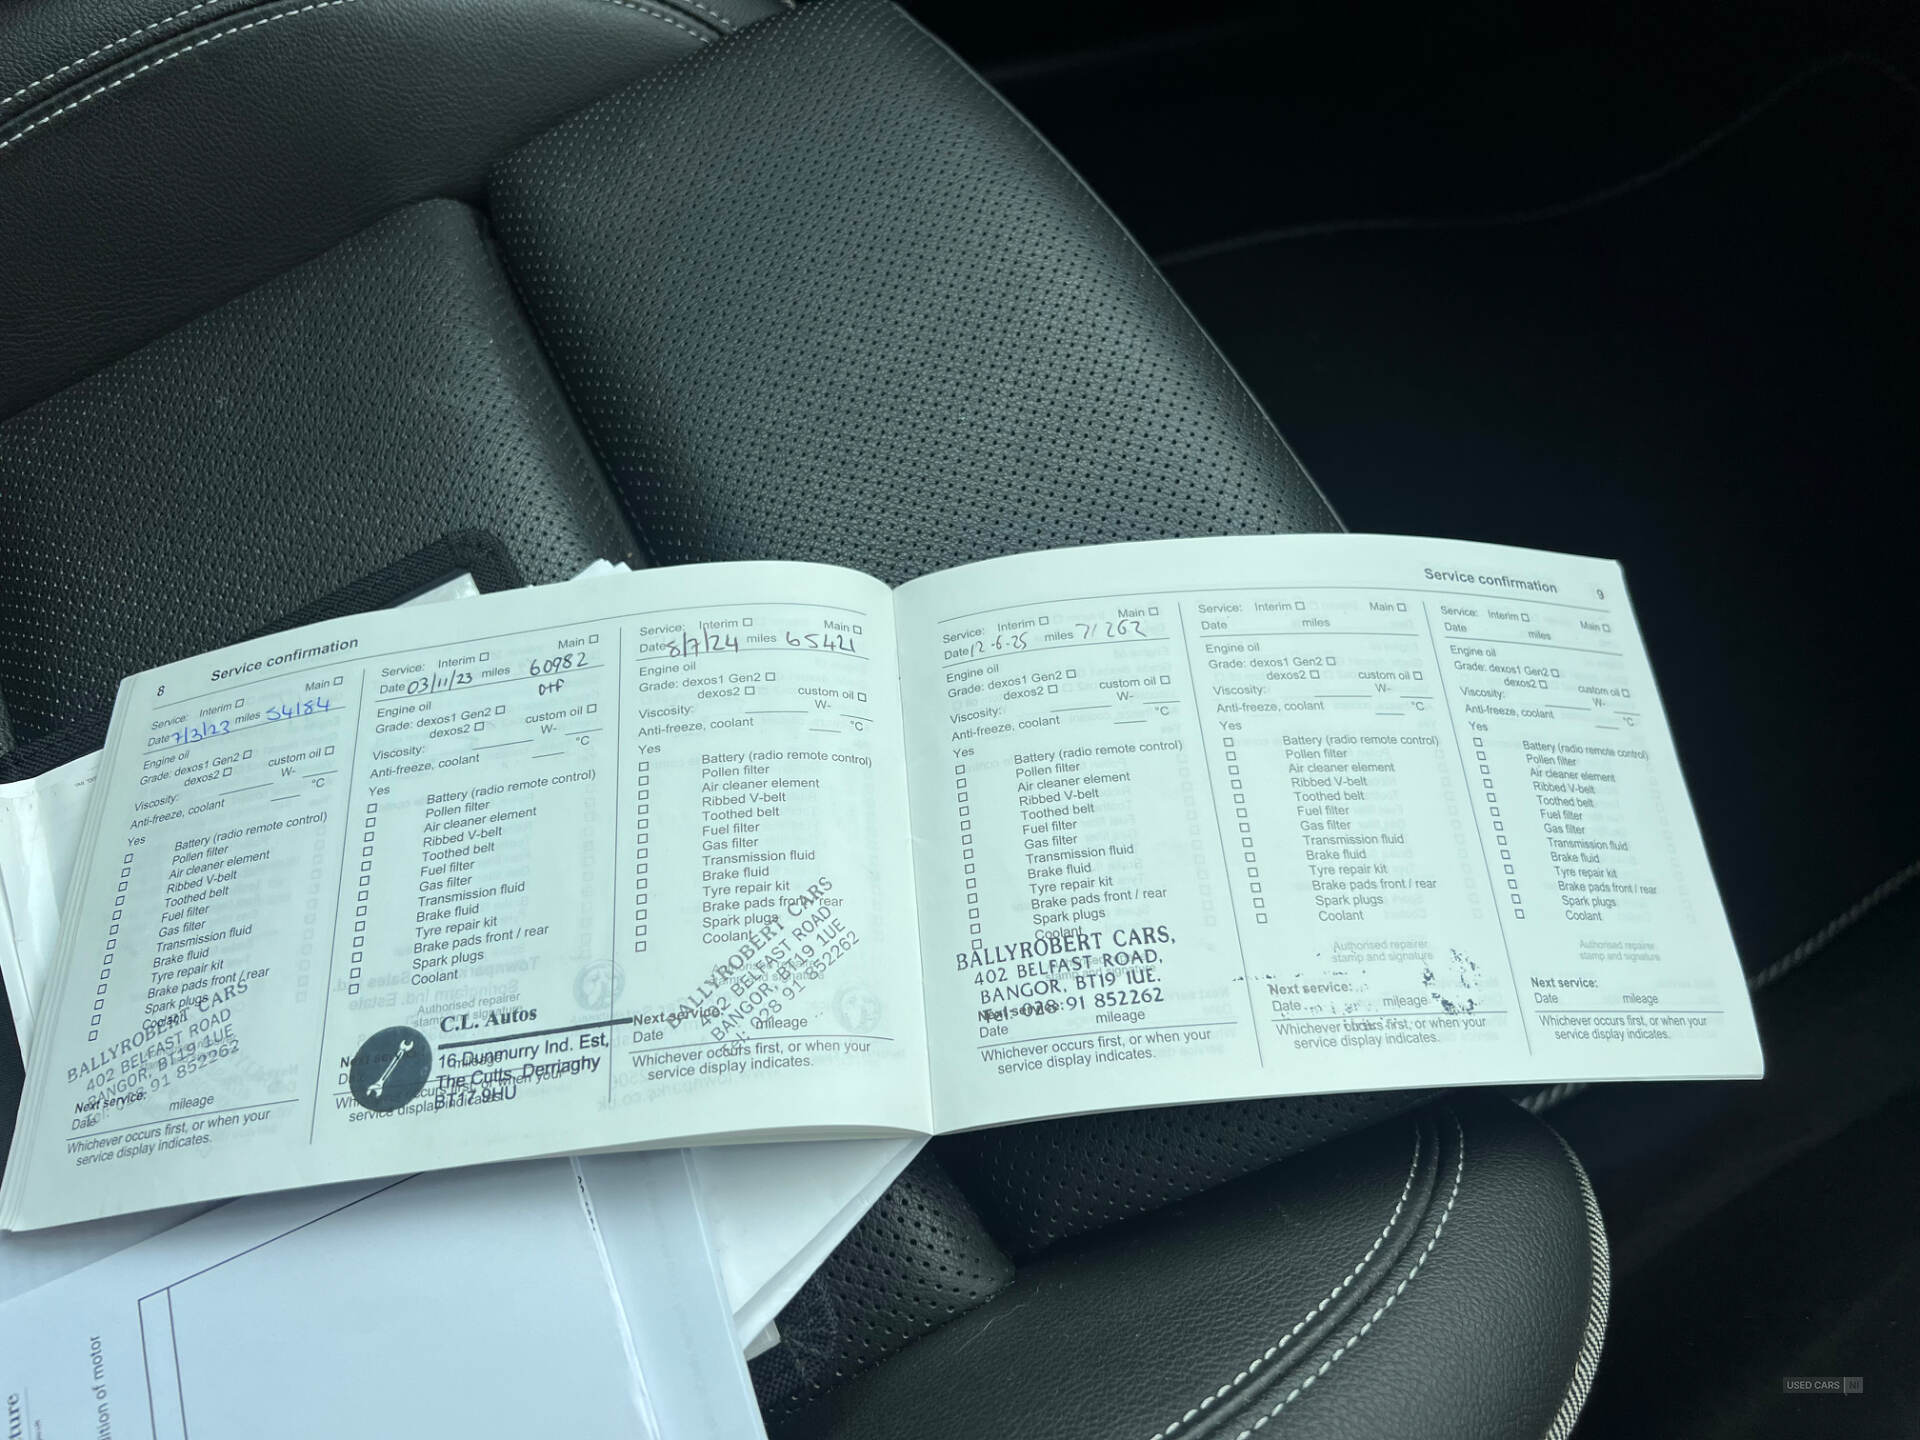 8 Service confirmation
Service: Interim Main
Date 7/3/23 miles 54184
Engine oil
Grade: dexos1 Gen2
dexos2 custom oil
Viscosity: W-
Anti-freeze, coolant °C
Yes
Battery (radio remote control)
Pollen filter
Air cleaner element
Ribbed V-belt
Toothed belt
Fuel filter
Gas filter
Transmission fluid
Brake fluid
Tyre repair kit
Brake pads front / rear
Spark plugs
Coolant
BALLYROBERT CARS
402 BELFAST ROAD
BANGOR, BT19 1UE
Tel: 028 91 852262
Next service:
Date mileage
Whichever occurs first, or when your
service display indicates.
Service: Interim Main
Date 03/11/23 miles 60982
Engine oil
Grade: dexos1 Gen2
dexos2 custom oil
Viscosity: W-
Anti-freeze, coolant °C
Yes
Battery (radio remote control)
Pollen filter
Air cleaner element
Ribbed V-belt
Toothed belt
Fuel filter
Gas filter
Transmission fluid
Brake fluid
Tyre repair kit
Brake pads front / rear
Spark plugs
Coolant
Authorised repairer
stamp and signature
C.L. Autos
16 Dunmurry Ind. Est,
The Cutts, Derriaghy
BT17 9HU
service display indicates.
Service: Interim Main
Date 8/7/24 miles 65421
Engine oil
Grade: dexos1 Gen2
dexos2 custom oil
Viscosity: W-
Anti-freeze, coolant °C
Yes
Battery (radio remote control)
Pollen filter
Air cleaner element
Ribbed V-belt
Toothed belt
Fuel filter
Gas filter
Transmission fluid
Brake fluid
Tyre repair kit
Brake pads front / rear
Spark plugs
Coolant
BALLYROBERT CARS
402 BELFAST ROAD
BANGOR, BT19 1UE
Tel: 028 91 852262
Next service:
Date mileage
Whichever occurs first, or when your
service display indicates.
Service confirmation 9
Service: Interim Main
Date 12-6-25 miles 71262
Engine oil
Grade: dexos1 Gen2
dexos2 custom oil
Viscosity: W-
Anti-freeze, coolant °C
Yes
Battery (radio remote control)
Pollen filter
Air cleaner element
Ribbed V-belt
Toothed belt
Fuel filter
Gas filter
Transmission fluid
Brake fluid
Tyre repair kit
Brake pads front / rear
Spark plugs
Coolant
BALLYROBERT CARS,
402 BELFAST ROAD,
BANGOR, BT19 1UE.
Tel: 028 91 852262
Next service:
Date mileage
Whichever occurs first, or when your
service display indicates.
Service: Interim Main
Date miles
Engine oil
Grade: dexos1 Gen2
dexos2 custom oil
Viscosity: W-
Anti-freeze, coolant °C
Yes
Battery (radio remote control)
Pollen filter
Air cleaner element
Ribbed V-belt
Toothed belt
Fuel filter
Gas filter
Transmission fluid
Brake fluid
Tyre repair kit
Brake pads front / rear
Spark plugs
Coolant
Authorised repairer
stamp and signature
Next service:
Date mileage
Whichever occurs first, or when your
service display indicates.
Service: Interim Main
Date miles
Engine oil
Grade: dexos1 Gen2
dexos2 custom oil
Viscosity: W-
Anti-freeze, coolant °C
Yes
Battery (radio remote control)
Pollen filter
Air cleaner element
Ribbed V-belt
Toothed belt
Fuel filter
Gas filter
Transmission fluid
Brake fluid
Tyre repair kit
Brake pads front / rear
Spark plugs
Coolant
Authorised repairer
stamp and signature
Next service:
Date mileage
Whichever occurs first, or when your
service display indicates.
of motor
USED CARS NI